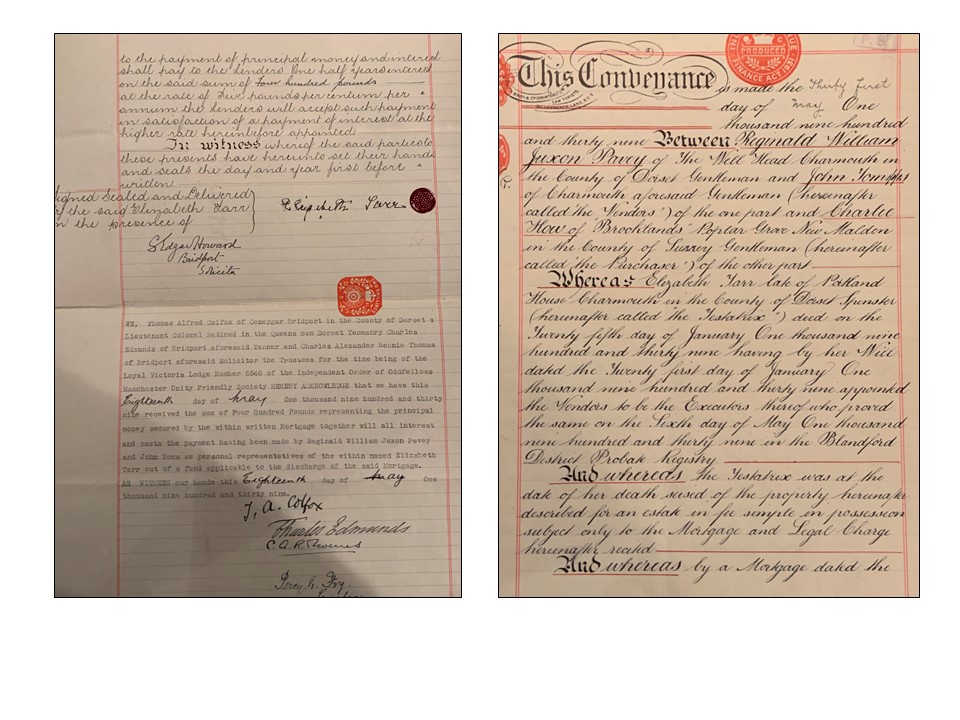 to the payment of principal money and interest
shall pay to the Lenders One half years interest
on the said sum of Four hundred pounds
at the rate of Five pounds per centum per
annum the Lenders will accept such payment
in satisfaction of a payment of interest at the
higher rate hereinbefore appointed.
In witness whereof the said parties to
these presents have hereunto set their hands
and seals the day and year first before
written
igned Sealed and Delivered
y the said Elizabeth Tarr
n the presence of
Elizabeth Tarr
S Edgar Howard
Bridport
Solicitor
WE, Thomas Alfred Colfox of Coneygar Bridport in the County of Dorset a
Lieutenant Colonel Retired in the Queens own Dorset Yeomanry Charles
Edmunds of Bridport aforesaid Tanner and Charles Alexander Thomas
of Bridport aforesaid Solicitor the Trustees for the time being of the
Loyal Victoria Lodge Number of the Independent Order of Oddfellows
Manchester Unity Friendly Society HEREBY ACKNOWLEDGE that we have this
Eighteenth day of May One thousand nine hundred and thirty
nine received the sum of Four Hundred Pounds representing the principal
money secured by the within written Mortgage together will all interest
and costs the payment having been made by Reginald William Juxon Pavey
and John as personal representatives of the within named Elizabeth
Tarr out of a fund applicable to the discharge of the said Mortgage.
AS WITNESS our hands this Eighteenth day of May One
thousand nine hundred and thirty nine.
T. A. Colfox
Charles Edmunds
Percy
PRODUCED
FINANCE ACT 1931
This Conveyance is made the Thirty first
day of May One
thousand nine hundred
and thirty nine Between Reginald William
Juxon Pavey of The Well Head Charmouth in
the County of Dorset Gentleman and John
of Charmouth aforesaid Gentleman (hereinafter
called the Vendors") of the one part and Charlie
How of Brooklands Poplar Grove New Malden
in the County of Surrey Gentleman (hereinafter
called "the Purchaser") of the other part
Whereas Elizabeth Tarr late of Portland
House Charmouth in the County of Dorset Spinster
(hereinafter called the Testatrix") died on the
Twenty fifth day of January One thousand nine
hundred and thirty nine having by her Will
dated the Twenty first day of January One
thousand nine hundred and thirty nine appointed
the Vendors to be the Executors thereof who proved
the same on the Sixth day of May One thousand
nine hundred and thirty nine in the Blandford
District Probate Registry
And whereas the Testatrix was at the
date of her death seised of the property hereinafter
described for an estate in fee simple in possession
subject only to the Mortgage and Legal Charge
hereinafter recited
And whereas by a Mortgage dated the